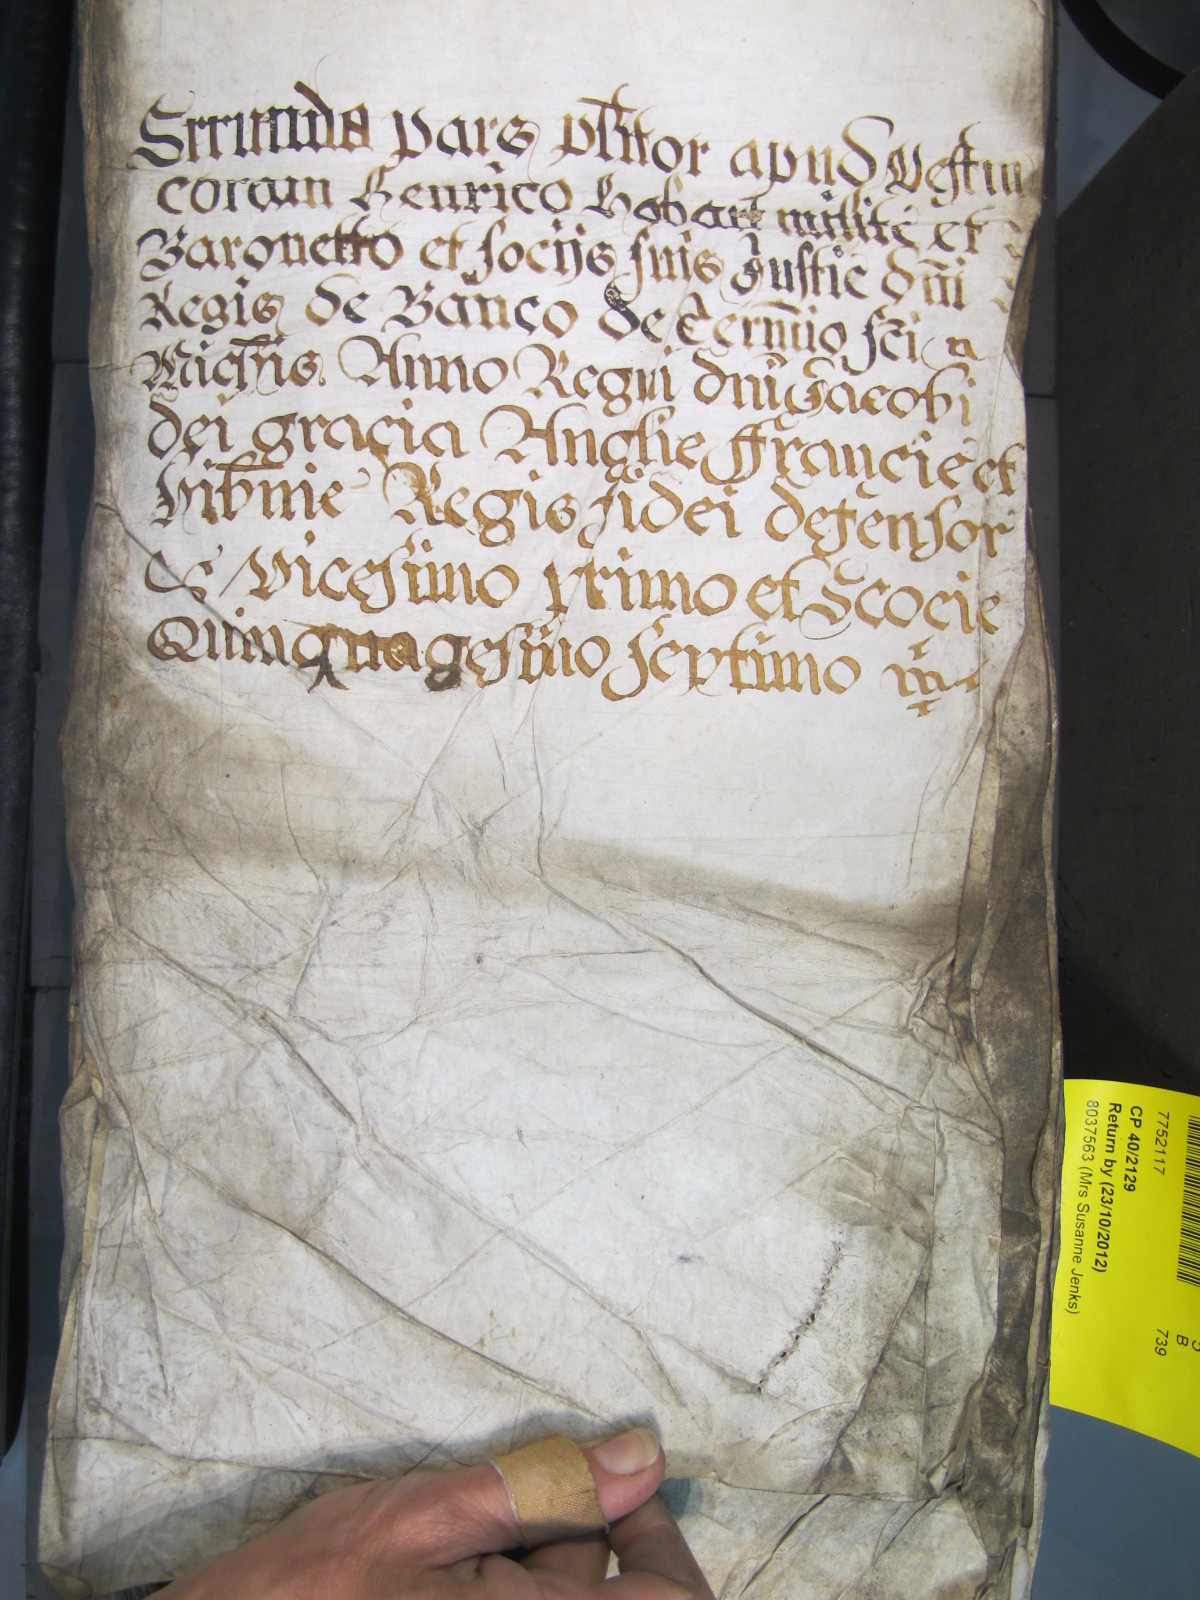 Secunda pars pl̃itor apud Westm̃
coram Henrico Hobart milite et
Baronetto et socijs suis Justic̃ dñi
Regis de Banco de Term̃io sc̃i
Mich̃is Anno Regni dñi Jacobi
dei gracia Anglie ffrancie et
hib̃nie Regis fidei defensor
&c vicesimo primo et Scocie
Quinquagesimo septimo
7752117
CP 40/2129
Return by (23/10/2012)
8037563 (Mrs Susanne Jenks)
B
739